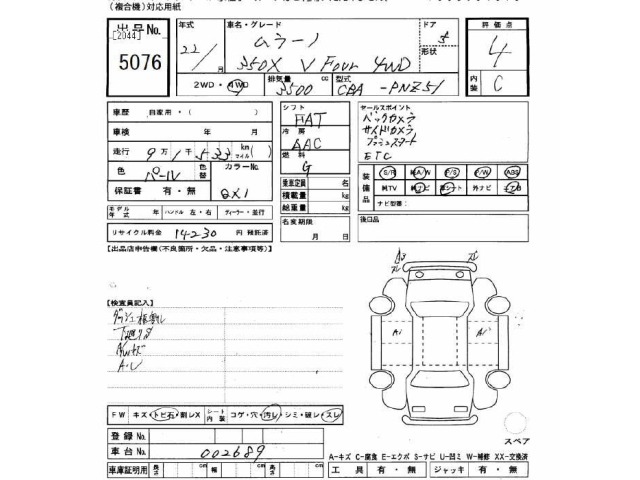 (複合機)対応用紙
出品No. 年式 車名・グレード ドア 評価点
[2044]
ムラーノ 5
22/ 形状 4
5076 350X V Four 4WD
2WD・4WD 排気量 cc 型式 内装
3500 CBA-PNZ51 C
車歴 自家用・( ) シフト セールスポイント
FAT バックカメラ
車検 年 月 冷房 サイドカメラ
AAC プッシュスタート
走行 9万1千533 km(マイル) 燃料 ETC
G
色 パール 色替 カラーNo. 装備品 S/R 純A/W P/S P/W ABS
乗車定員 名 純TV 外ナビ
保証書 有・無 QX1 積載量 kg
総重量 kg ナビ型番:
モデル年式 年 ハンドル 左・右 ディーラー・並行 名変期限 後日品
リサイクル料金 14230 円 預託済 月 日
【出品店申告欄(不良箇所・欠品・注意事項等)】
【検査員記入】
A1 A1
A・U
FW キズ・トビ石・割レX シート内装 コゲ・穴・汚レ・シミ・破レ・スレ
登録No. スペア
車台No. 002689
A-キズ C-腐食 E-エクボ S-サビ U-凹ミ W-補修 XX-交換済
車庫証明用 長さ cm 幅 cm 高さ cm 工具 有・無 ジャッキ 有・無